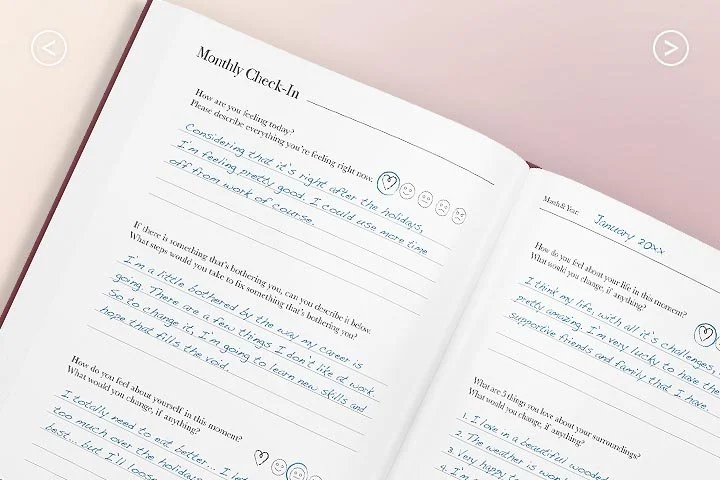 Monthly Check-In
How are you feeling today?
Please describe everything you're feeling right now.
Considering that it's right after the holidays,
I'm feeling pretty good. I could use more time
off from work of course.
If there is something that's bothering you, can you describe it below.
What steps would you take to fix something that's bothering you?
I'm a little bothered by the way my career is
going. There are a few things I don't like at work.
So to change it, I'm going to learn new skills and
hope that fills the void.
How do you feel about yourself in this moment?
What would you change, if anything?
I totally need to eat better... I let
too much over the holidays
best... but I'll loose
Month & Year:
January 20xx
How do you feel about your life in this moment?
What would you change, if anything?
I think my life, with all it's challenges,
pretty amazing. I'm very lucky to have the
supportive friends and family that I have.
What are 5 things you love about your surroundings?
What would you change, if anything?
1. I love in a beautiful wooded
2. The weather is won
3. Very happy t
4. I'm